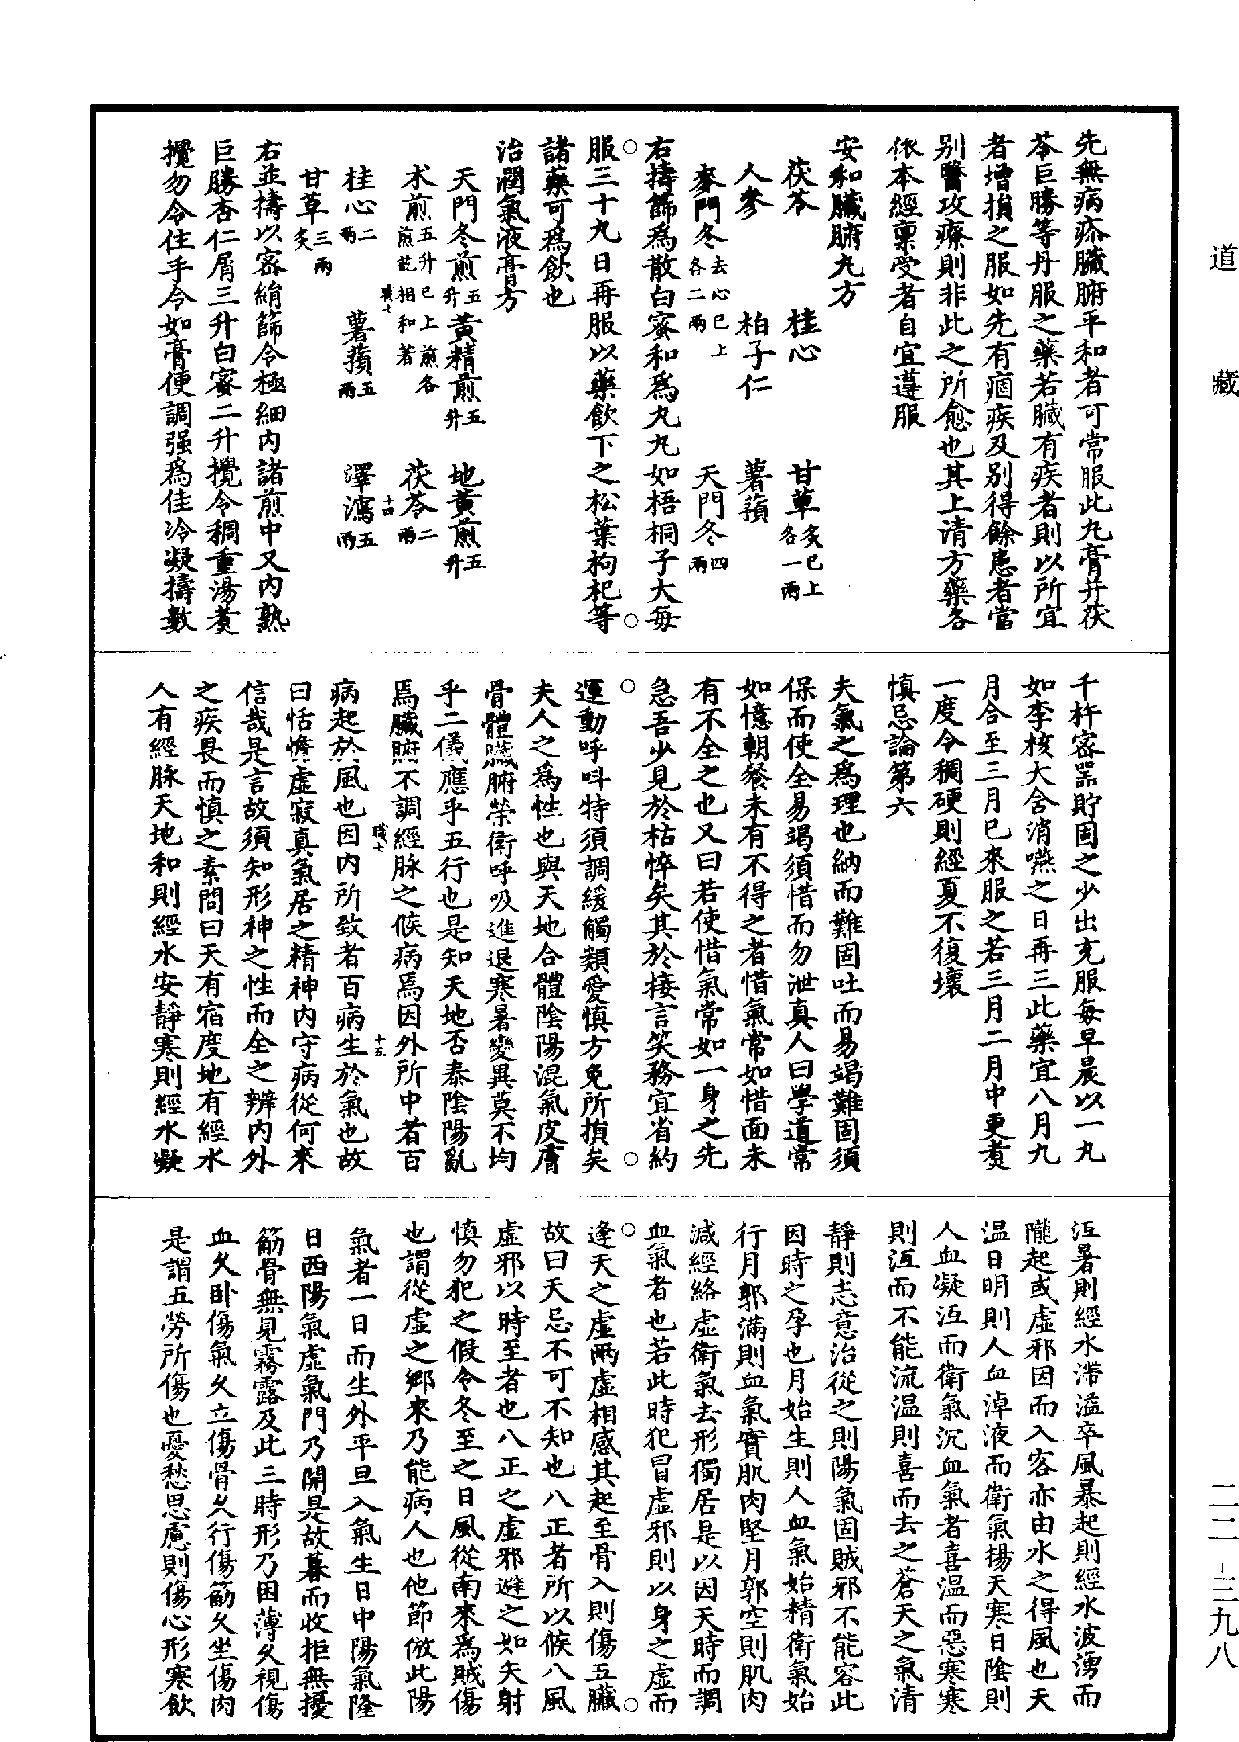 道藏
先無病疹臟腑平和者可常服此丸膏并茯
苓巨勝等丹服之藥若臟有疾者則以所宜
者增損之服如先有痼疾及别得餘患者當
别醫攻療則非此之所愈也其上清方藥各
依本經稟受者自宜遵服
安和臟腑丸方
茯苓 桂心 甘草炙已上各一兩
人參 柏子仁 薯蕷
麥門冬去心已上各二兩 天門冬四兩
右擣篩為散白蜜和為丸丸如梧桐子大每
服三十九日再服以藥飲下之松葉枸杞等
諸藥可為飲也
治潤氣液膏方
天門冬煎五升 黃精煎五升 地黃煎五升
术煎五升已上煎各煎訖相和著 茯苓二兩
職七 十四
桂心二兩 薯蕷五兩 澤瀉五兩
甘草三兩炙
右並擣以密絹篩令極細内諸煎中又内熟
巨勝杏仁屑三升白蜜二升攪令稠重湯煑
攪勿令住手令如膏便調强為佳冷凝擣數
千杵密器貯固之少出充服每早晨以一丸
如李核大含消嚥之日再三此藥宜八月九
月合至三月已來服之若三月二月中更煑
一度令稠硬則經夏不復壞
慎忌論第六
夫氣之為理也納而難固吐而易竭難固須
保而使全易竭須惜而勿泄真人曰學道常
如憶朝餐未有不得之者惜氣常如惜面未
有不全之也又曰若使惜氣常如一身之先
急吾少見於枯悴矣其於接言笑務宜省約
運動呼吽特須調緩觸類愛慎方免所損矣
夫人之為性也與天地合體陰陽混氣皮膚
骨體臟腑榮衛呼吸進退寒暑變異莫不均
乎二儀應乎五行也是知天地否泰陰陽亂
焉臟腑不調經脉之候病焉因外所中者百
職七 十五
病起於風也因内所致者百病生於氣也故
曰恬憺虛寂真氣居之精神内守病從何來
信哉是言故須知形神之性而全之辨内外
之疾畏而慎之素問曰天有宿度地有經水
人有經脉天地和則經水安靜寒則經水凝
沍暑則經水沸溢卒風暴起則經水波湧而
隴起或虛邪因而入客亦由水之得風也天
温日明則人血淖液而衛氣揚天寒日陰則
人血凝沍而衛氣沉血氣者喜温而惡寒寒
則沍而不能流温則喜而去之蒼天之氣清
靜則志意治從之則陽氣固賊邪不能容此
因時之孕也月始生則人血氣始精衛氣始
行月郭滿則血氣實肌肉堅月郭空則肌肉
減經絡虛衛氣去形獨居是以因天時而調
血氣者也若此時犯冒虛邪則以身之虛而
逢天之虛兩虛相感其起至骨入則傷五臟
故曰天忌不可不知也八正者所以候八風
虛邪以時至者也八正之虛邪避之如矢射
慎勿犯之假令冬至之日風從南來為賊傷
也謂從虛之鄉來乃能病人也他節倣此陽
氣者一日而生外平旦入氣生日中陽氣隆
日西陽氣虛氣門乃開是故暮而收拒無擾
筋骨無見霧露及此三時形乃困薄久視傷
血久卧傷氣久立傷骨久行傷筋久坐傷肉
是謂五勞所傷也憂愁思慮則傷心形寒飲
二二-三九八